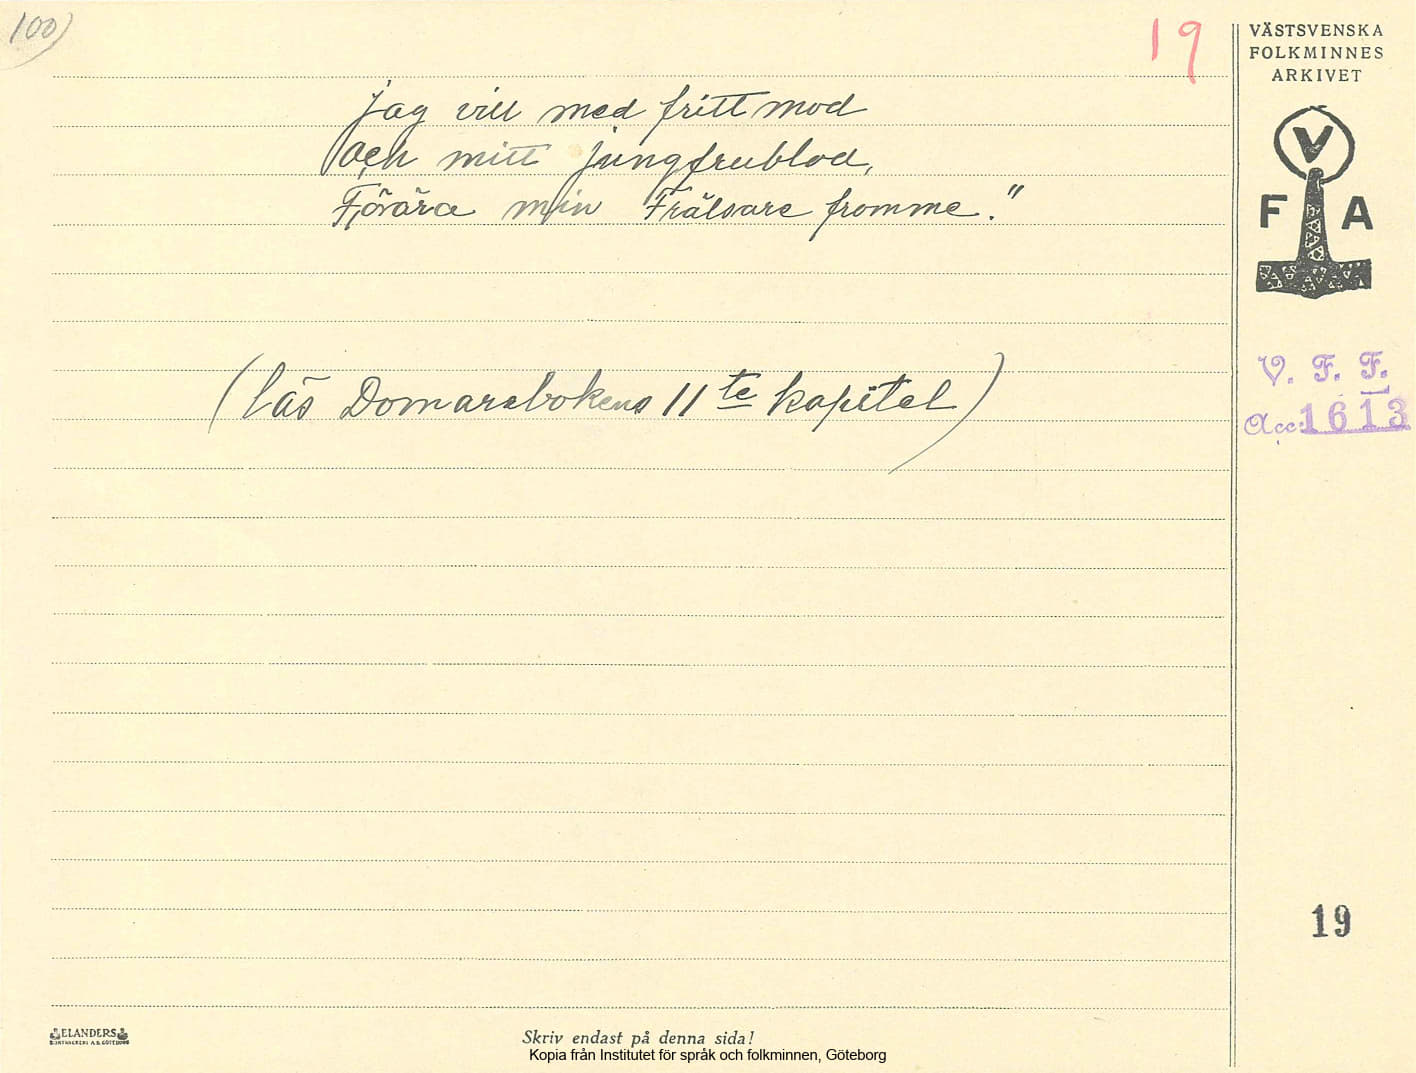 100)
19
VÄSTSVENSKA
FOLKMINNES
ARKIVET
V
F A
jag vill med fritt mod
och mitt jungfrublod,
Förära min Frälsare fromme."
(läs Domarebokens 11te kapitel)
V. F. F.
Acc. 1613
19
ELANDERS
BOKTRYCKERI A.B. GÖTEBORG
Skriv endast på denna sida!
Kopia från Institutet för språk och folkminnen, Göteborg